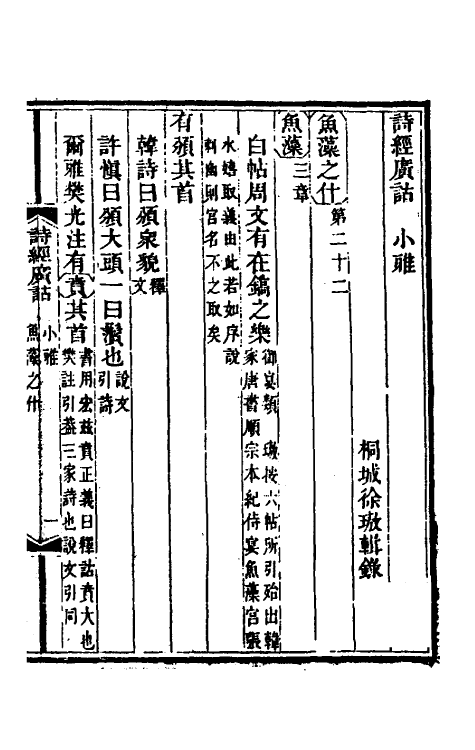 詩經廣詁　小雅
桐城徐璈輯錄
魚藻之什　第二十二
魚藻　三章
白帖周文有在鎬之樂　御宴類　璈按六帖所引殆出韓
家唐書順宗本紀侍宴魚藻宮張
水嬉取義由此若如序說
則宮名不之取矣
有頒其首
韓詩曰頒眾貌　釋文
許慎曰頒大頭一曰鬢也　說文引詩
爾雅樊光注有賁其首　書用宏茲賁正義曰釋詁賁大也
樊註引葢三家詩也說文引同
詩經廣詁　小雅　魚藻之什　一